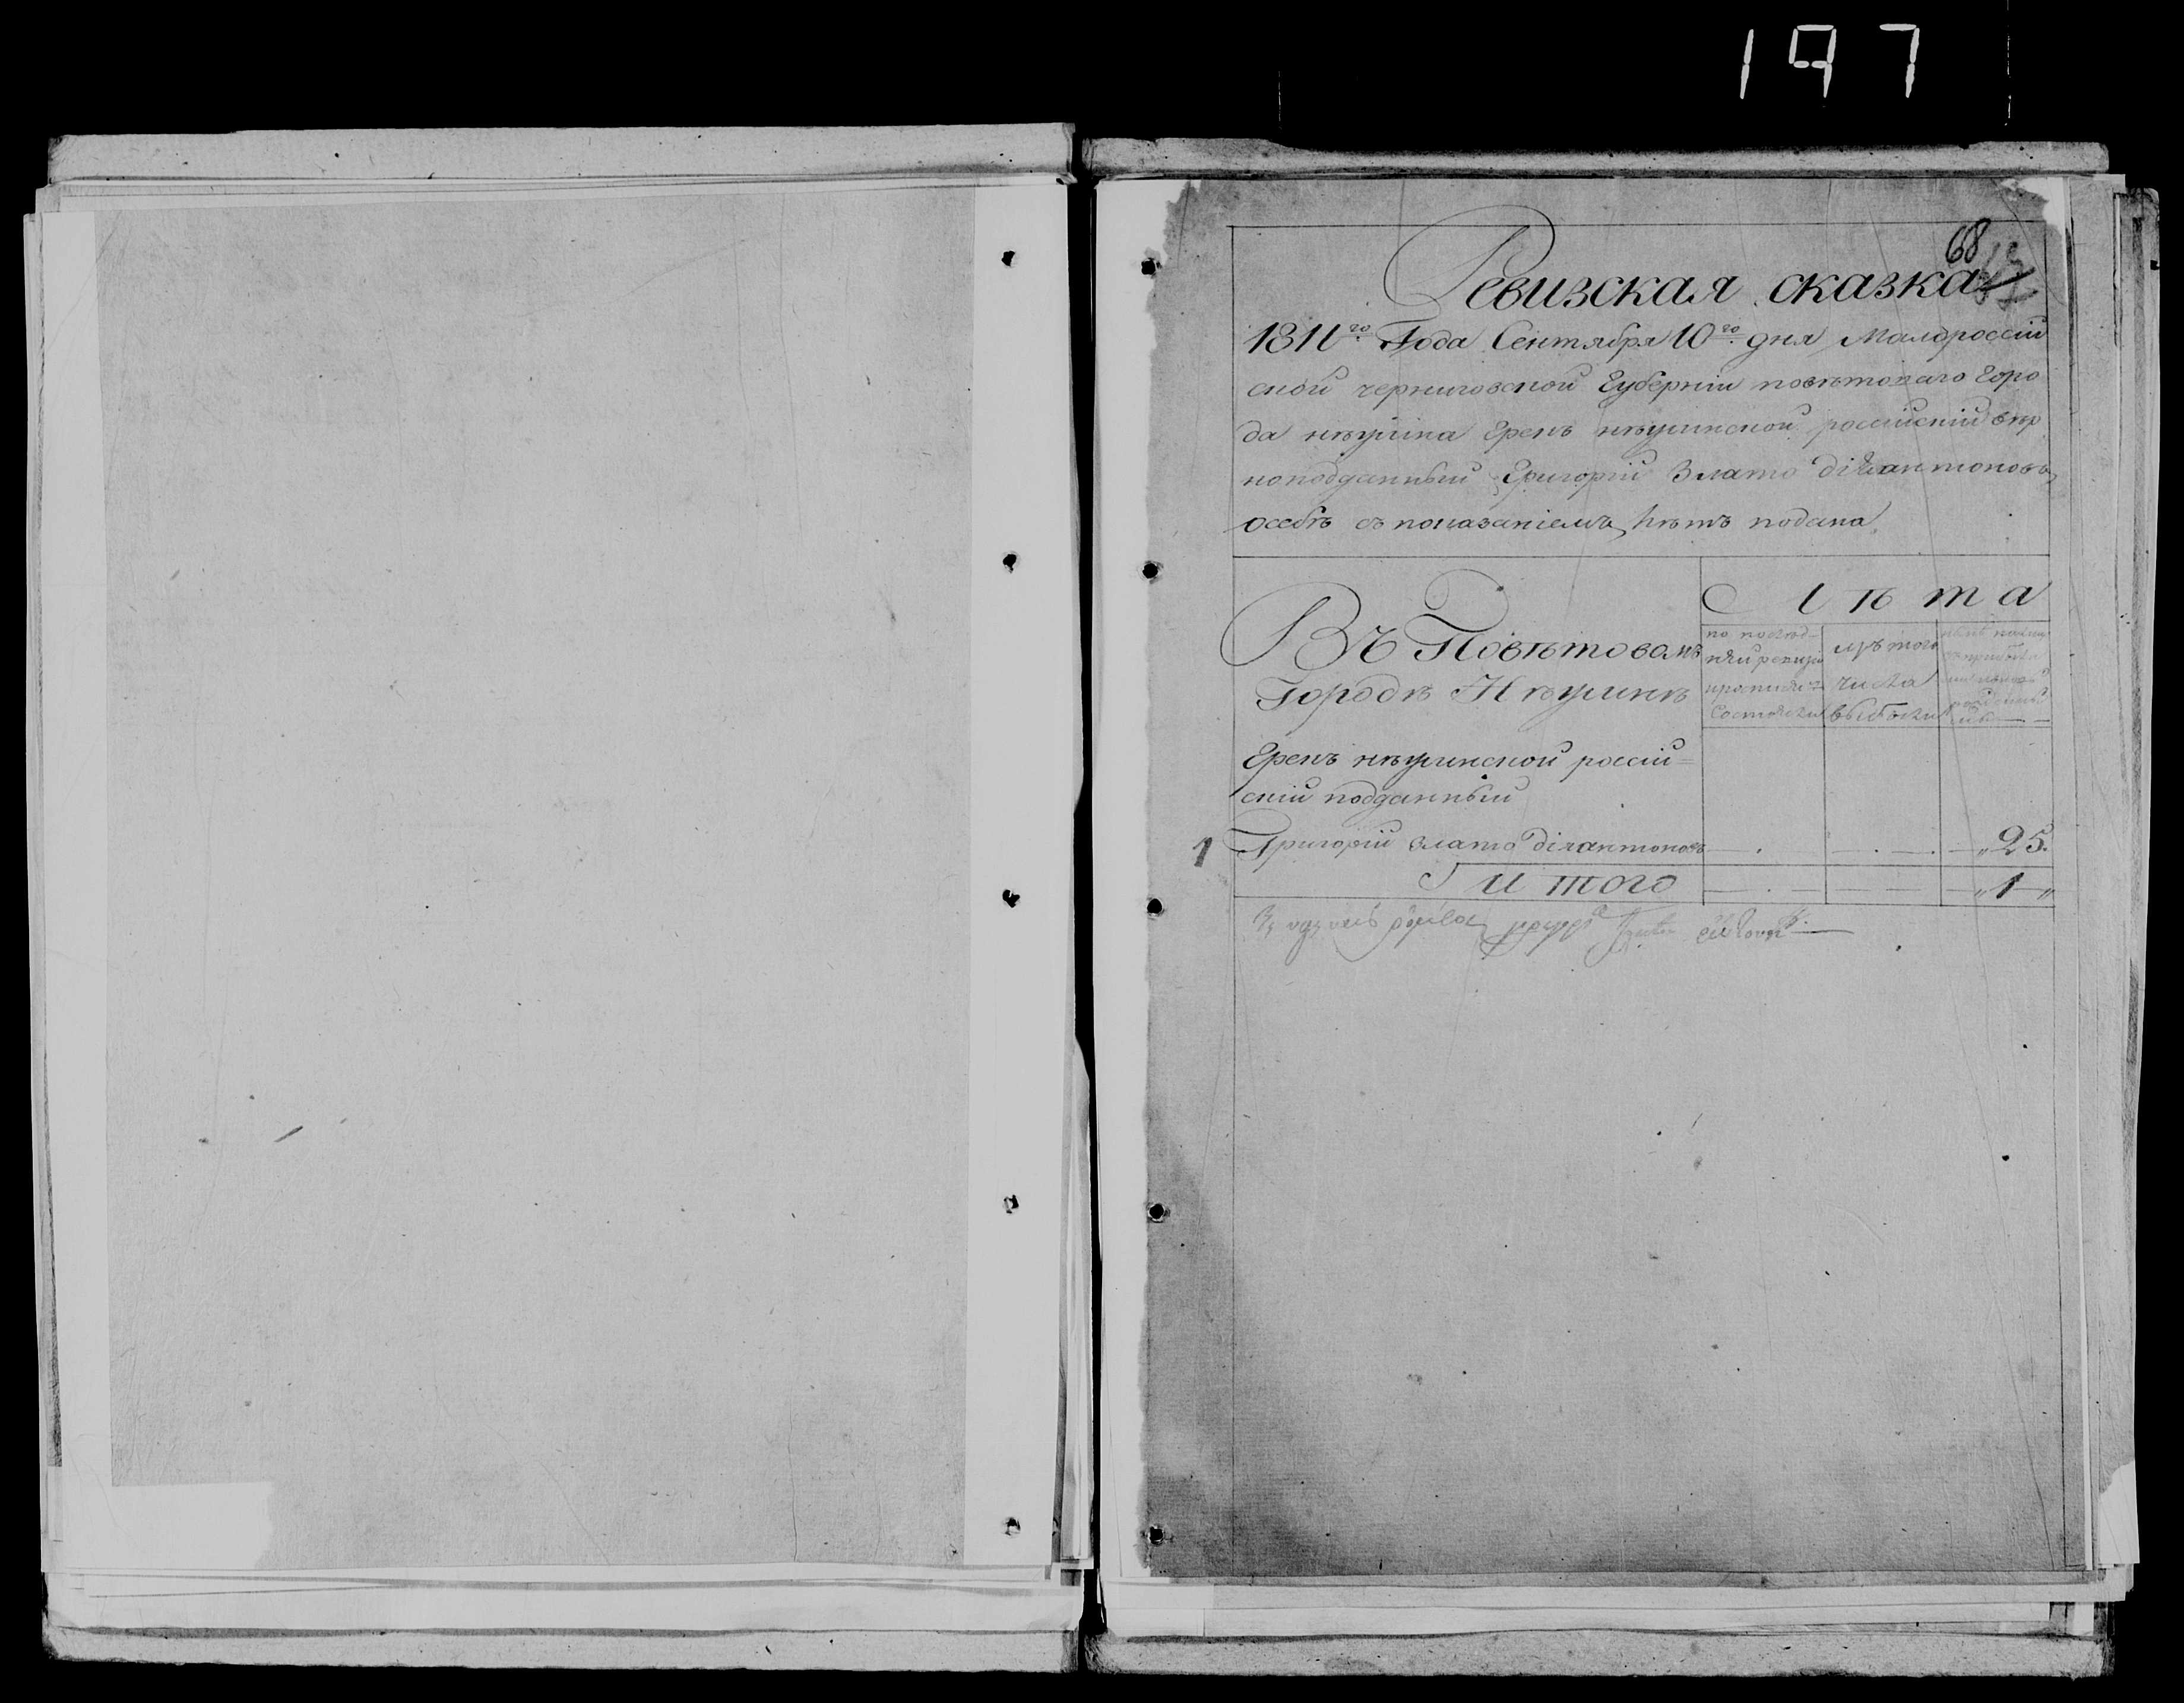 197
68
Ревизская сказка
1811го Года Сентября 10го дня Малороссій
ской черниговской Губерніи повѣтоваго горо
да нѣжина Грекъ нѣжинской россійскій вѣр
ноподданный Григорій Злато діамантоновъ
особѣ съ показаніемъ лѣтъ подана
Въ Повѣтовомъ
Городѣ Нѣжинѣ
Лѣта
по послѣд-
нѣй ревизіи
состояли
изъ того
числа
выбыли
Грекъ нѣжинской россій=
скій подданный
1 Григорій злато діамантоновъ 25.
Итого „1„